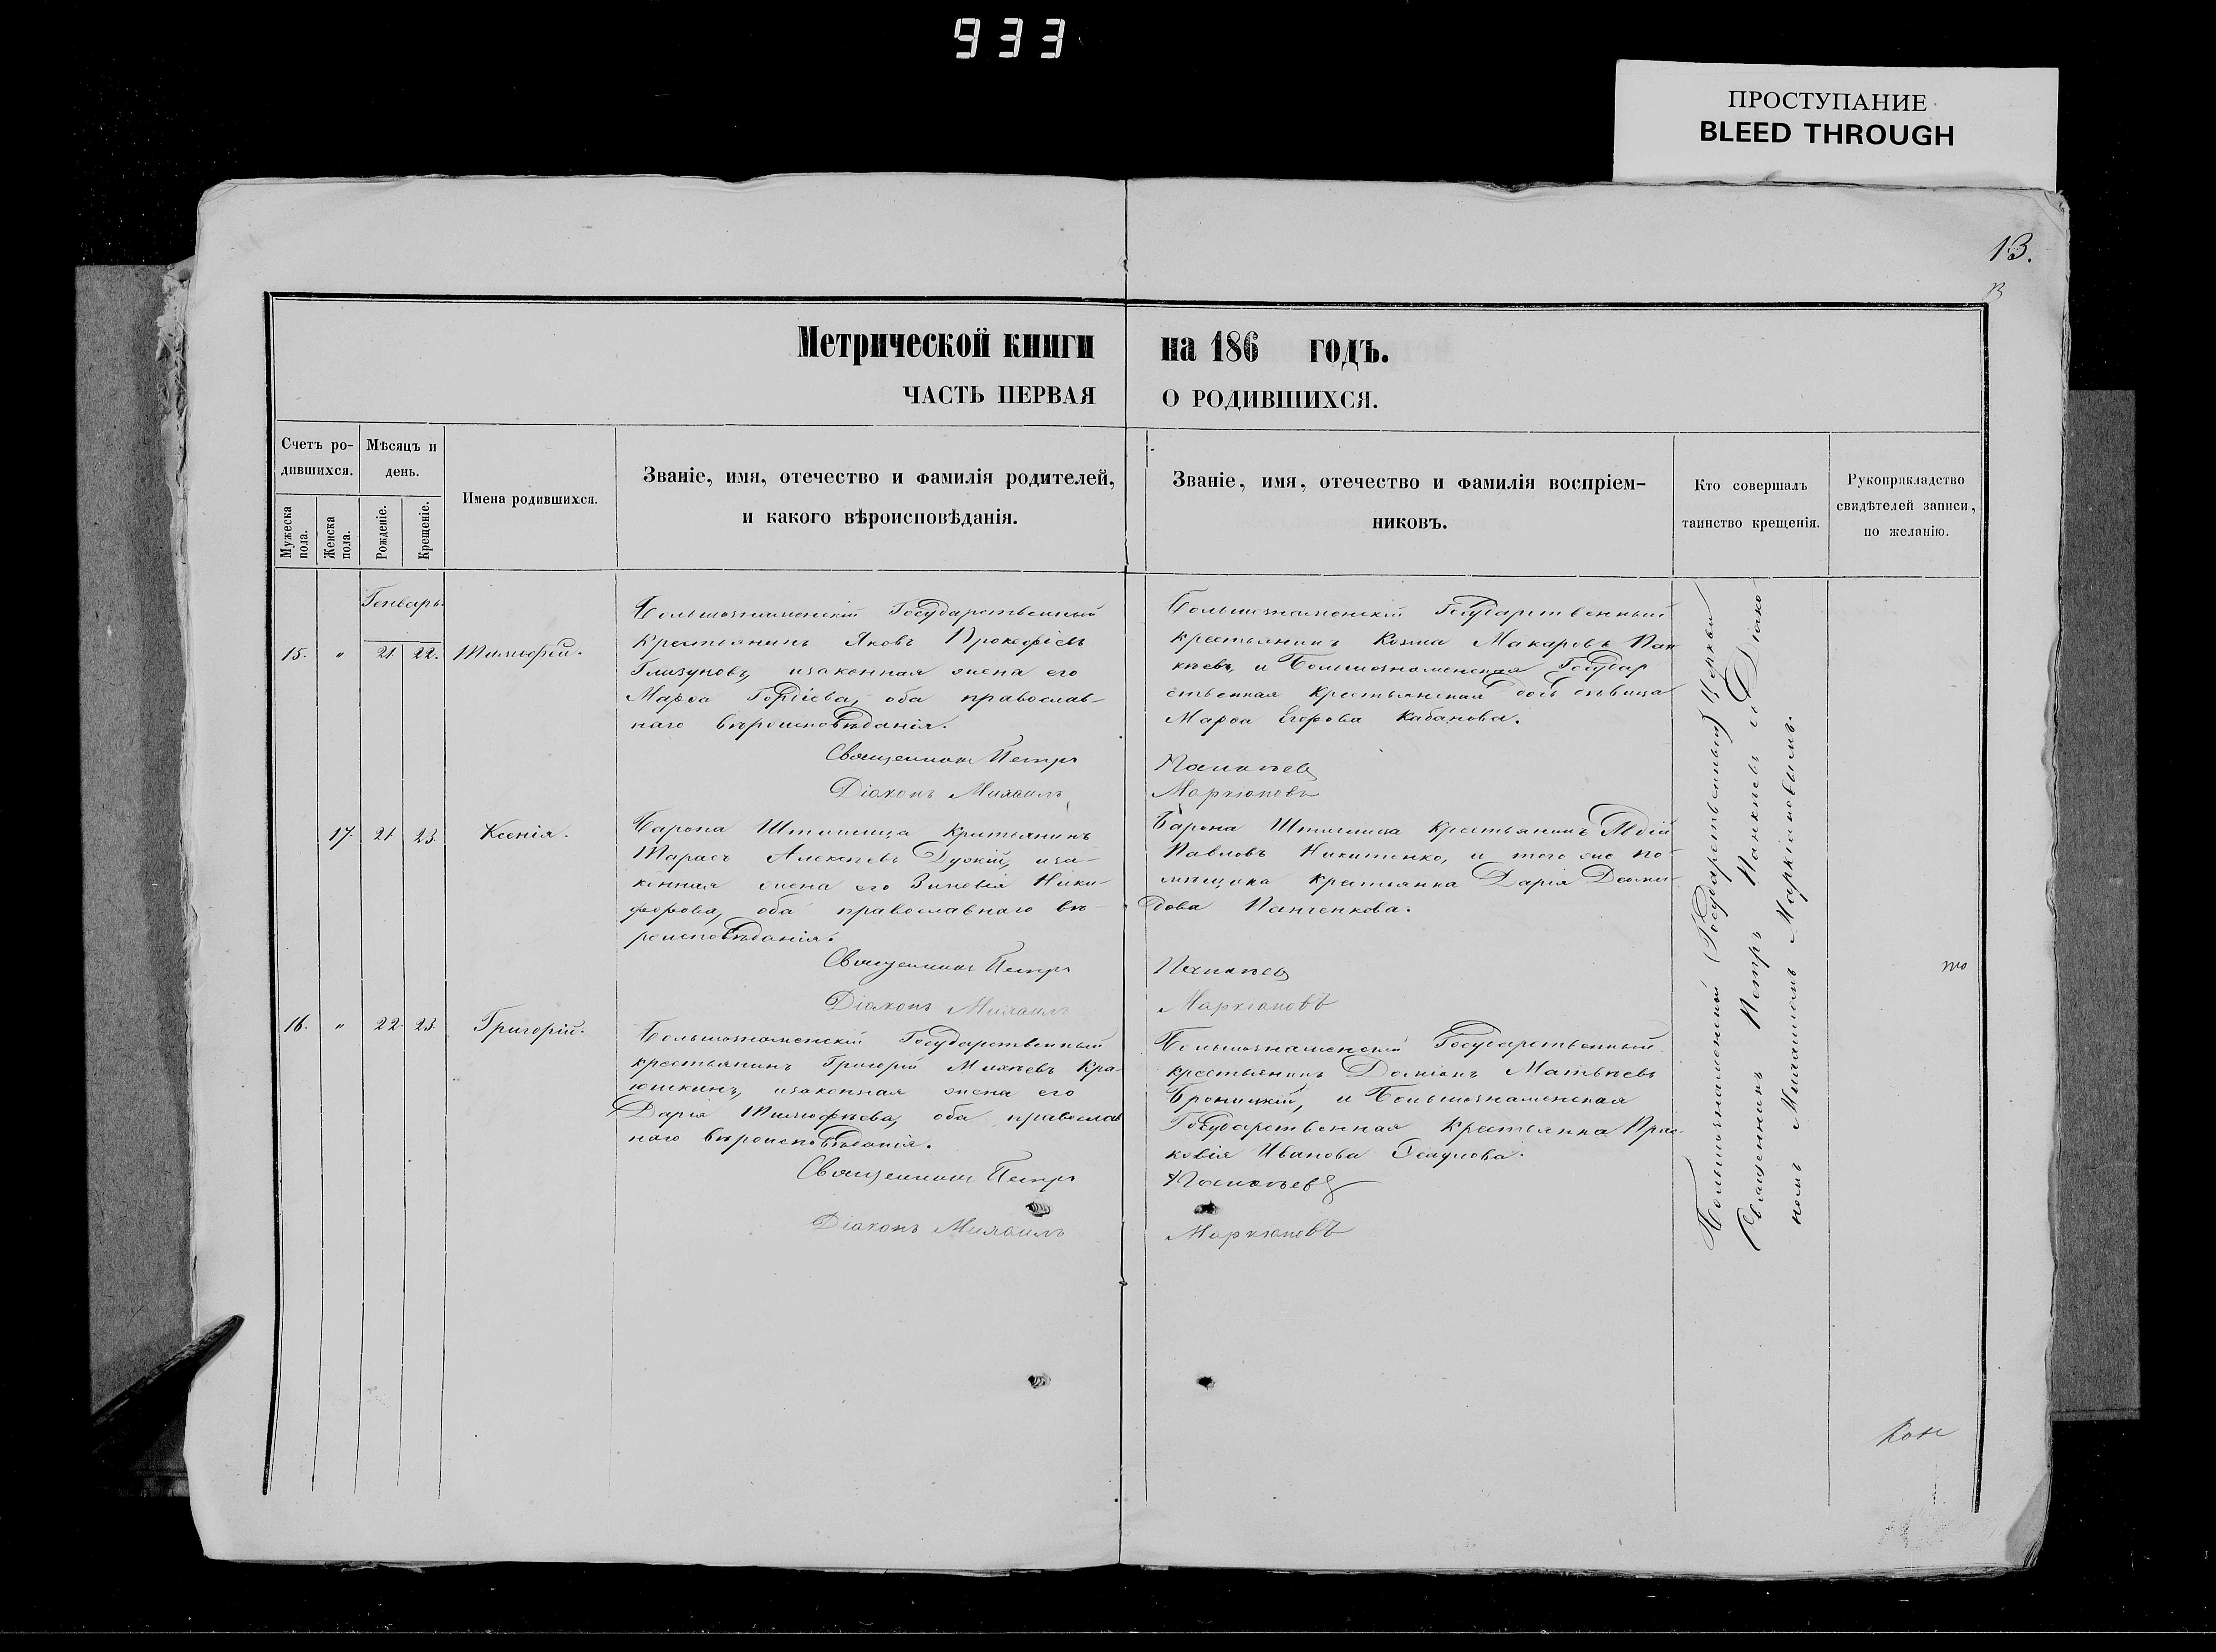 933
ПРОСТУПАНИЕ
BLEED THROUGH
13.
13
Метрической книги на 186 годъ.
ЧАСТЬ ПЕРВАЯ О РОДИВШИХСЯ.
Счетъ ро-
дившихся.
Мужеска
пола.
Женска
пола.
Мѣсяцъ и
день.
Рожденіе.
Крещеніе.
Имена родившихся.
Званіе, имя, отечество и фамилія родителей,
и какого вѣроисповѣданія.
Званіе, имя, отечество и фамилія воспріем-
никовъ.
Кто совершалъ
таинство крещенія.
Рукоприкладство
свидѣтелей записи,
по желанію.
Генварь.
15. " 21. 22. Тимофей.
Большознаменскій Государственный
крестьянинъ Яковъ Прокофіевъ
Глизуновъ, изаконная жена его
Марфа Гордіева, оба православ-
наго вѣроисповѣданія.
Священникъ Петръ
Діаконъ Михаилъ
Большознаменскій Государственный
крестьянинъ Козма Макаровъ Пан
кѣевъ, и Большознаменская Государ
ственная крестьянская дочь дѣвица
Марфа Егорова Кабанова.
Панкѣевъ
Маркіановъ
17. 21. 23. Ксенія.
Барона Штиглица крестьянинъ
Тарасъ Алексѣевъ Дуокій, иза-
конная жена его Зиновія Ники-
форова, оба православнаго вѣ-
роисповѣданія.
Священникъ Петръ
Діаконъ Михаилъ
Барона Штиглица крестьянинъ Авдій
Павловъ Никитенко, и того же по-
мѣщика крестьянка Дарія Деми-
дова Панченкова.
Панкѣевъ
Маркіановъ
16. " 22. 23. Григорій.
Большознаменскій Государственный
крестьянинъ Григорій Михѣевъ Кра-
юшкинъ, изаконная жена его
Дарія Тимофѣева, оба православ
наго вѣроисповѣданія.
Священникъ Петръ
Діаконъ Михаилъ
Большознаменскій Государственный
крестьянинъ Доміанъ Матвѣевъ
Броницкій, и Большознаменская
Государственная крестьянка Прас-
ковія Иванова Осаулова.
Панкѣевъ
Маркіановъ
Большознаменской (Государственный) Церкви
Священникъ Петръ Панкѣевъ съ Діако
номъ Михаиломъ Маркіановымъ.
то
Кон